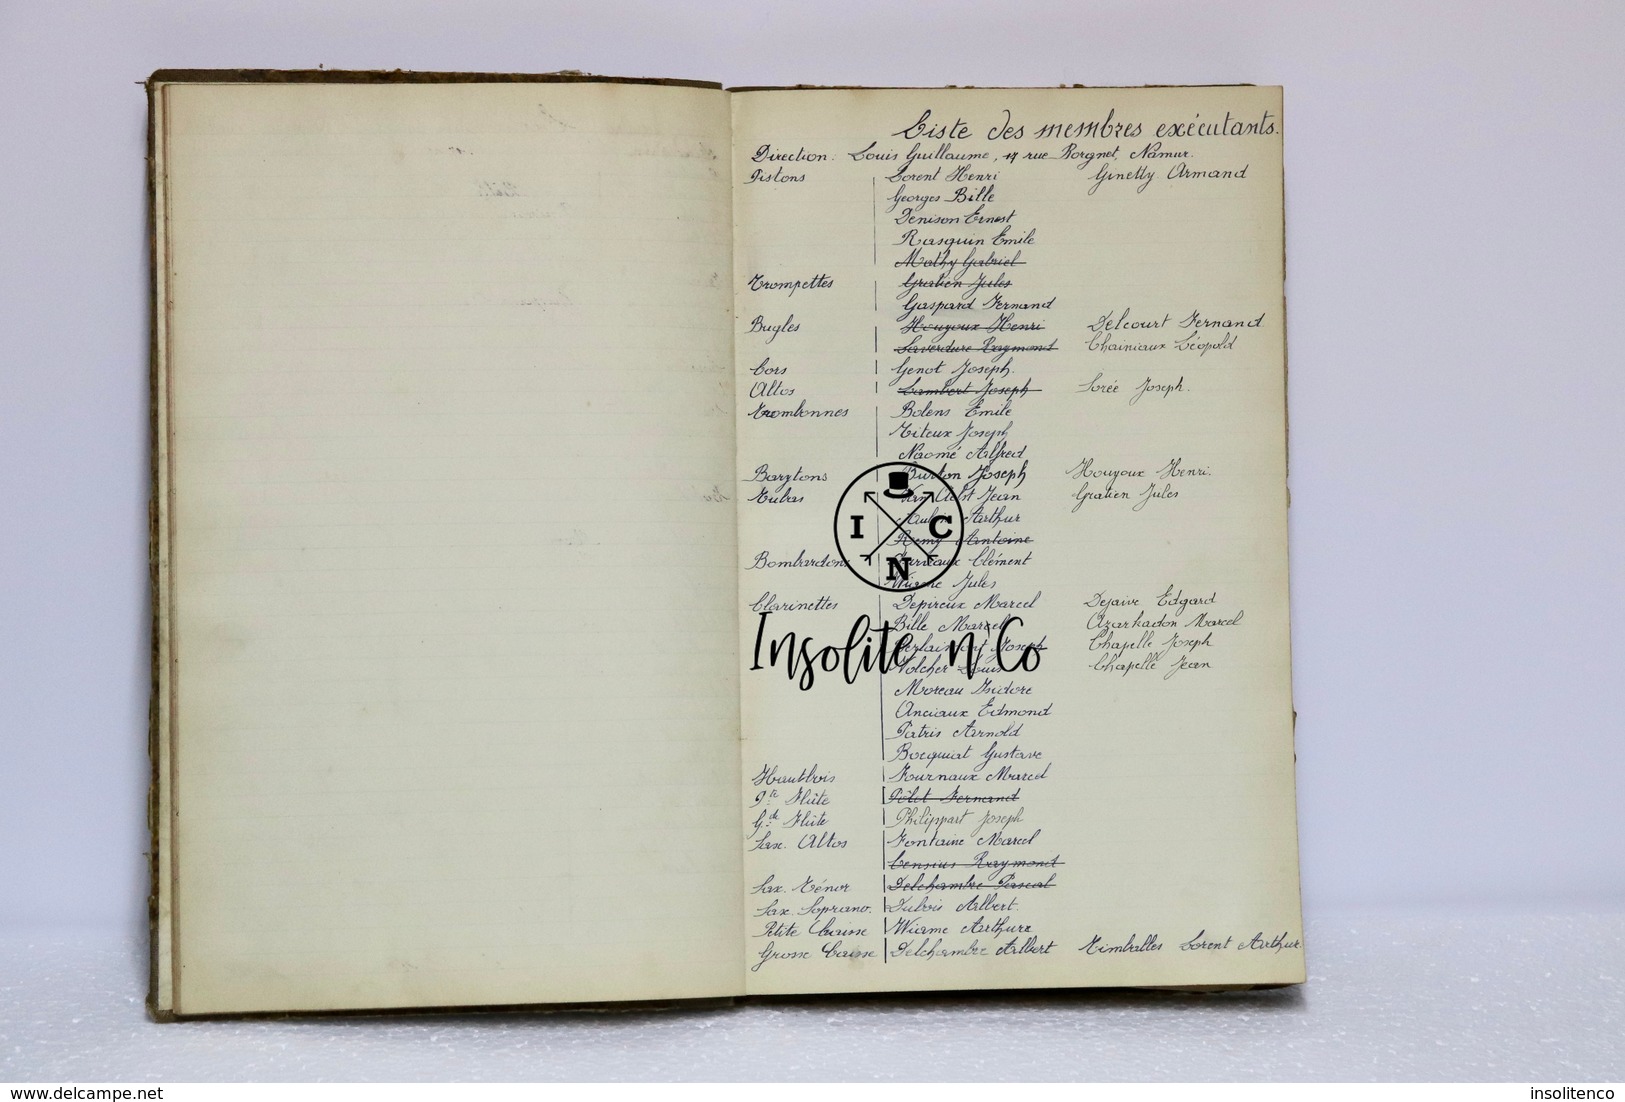 Liste des membres exécutants.
Direction. Louis Guillaume, 17 rue Borgnet, Namur.
Pistons Lorent Henri Ginetty Armand
Georges Bille
Denison Ernest
Rasquin Emile
Mathy Gabriel
Trompettes Gratien Jules
Gaspard Fernand
Bugles Houyoux Henri Delcourt Fernand
Laverdure Raymond Chainiaux Léopold
Cors Genot Joseph.
Altos Lambert Joseph Sorée Joseph.
Trombonnes Bolens Emile
Titeux Joseph
Naomé Alfred
Barytons Burton Joseph Houyoux Henri.
Tubas Van Aelst Jean Gratien Jules
Arthur
Remy Antoine
Bombardons Clément
Wiame Jules
Clarinettes Depireux Marcel Dejaive Edgard
Bille Marcel Azarkadon Marcel
Joseph Chapelle Joseph
Louis Chapelle Jean
Moreau Isidore
Anciaux Edmond
Patris Arnold
Bocquiat Gustave
Hautbois Fournaux Marcel
Pte Flûte Pôlet Fernand
Gde Flûte Philippart Joseph
Sax. Altos Fontaine Marcel
Censius Raymond
Sax. Ténor Delchambre Pascal
Sax. Soprano. Dubois Albert.
Petite Caisse Wiame Arthure
Grosse Caisse Delchambre Albert Timballes Lorent Arthur.
I C N
Insolite n'Co
delcampe.net
insolitenco